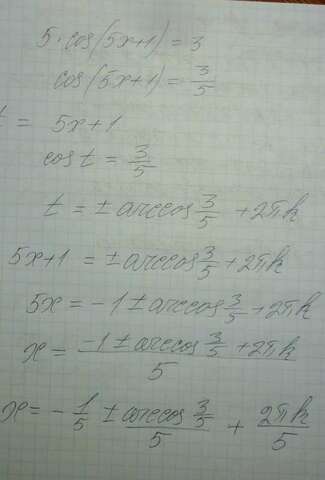 5·cos(5x+1) = 3
cos(5x+1) = 3/5
t = 5x+1
cos t = 3/5
t = ± arccos 3/5 + 2πk
5x+1 = ± arccos 3/5 + 2πk
5x = -1 ± arccos 3/5 + 2πk
x = (-1 ± arccos 3/5 + 2πk)/5
x = - 1/5 ± (arccos 3/5)/5 + 2πk/5